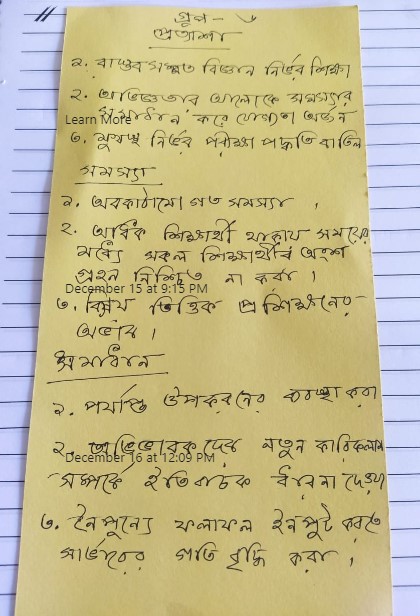 গ্রুপ - ৬
প্রত্যাশা
১. বাস্তব সম্মত বিজ্ঞান নির্ভর শিক্ষা
২. অভিজ্ঞতার আলোকে সমস্যার
সমাধান করে যোগ্যতা অর্জন
Learn More
৩. মুখস্থ নির্ভর পরীক্ষা পদ্ধতি বাতিল
সমস্যা
১. অবকাঠামো গত সমস্যা ।
২. অধিক শিক্ষার্থী থাকায় সময়ের
মধ্যে সকল শিক্ষার্থীর অংশ
গ্রহন নিশ্চিত না করা ।
December 15 at 9:15 PM
৩. বিষয় ভিত্তিক প্রশিক্ষনের
অভাব ।
সমাধান
১. পর্যাপ্ত উপকরনের ব্যবস্থা করা
২. অভিভাবকদের নতুন কারিকুলাম
December 16 at 12:09 PM
সম্পর্কে ইতিবাচক ধারনা দেওয়া
৩. নৈপুন্যে ফলাফল ইনপুট করতে
সার্ভারের গতি বৃদ্ধি করা ।